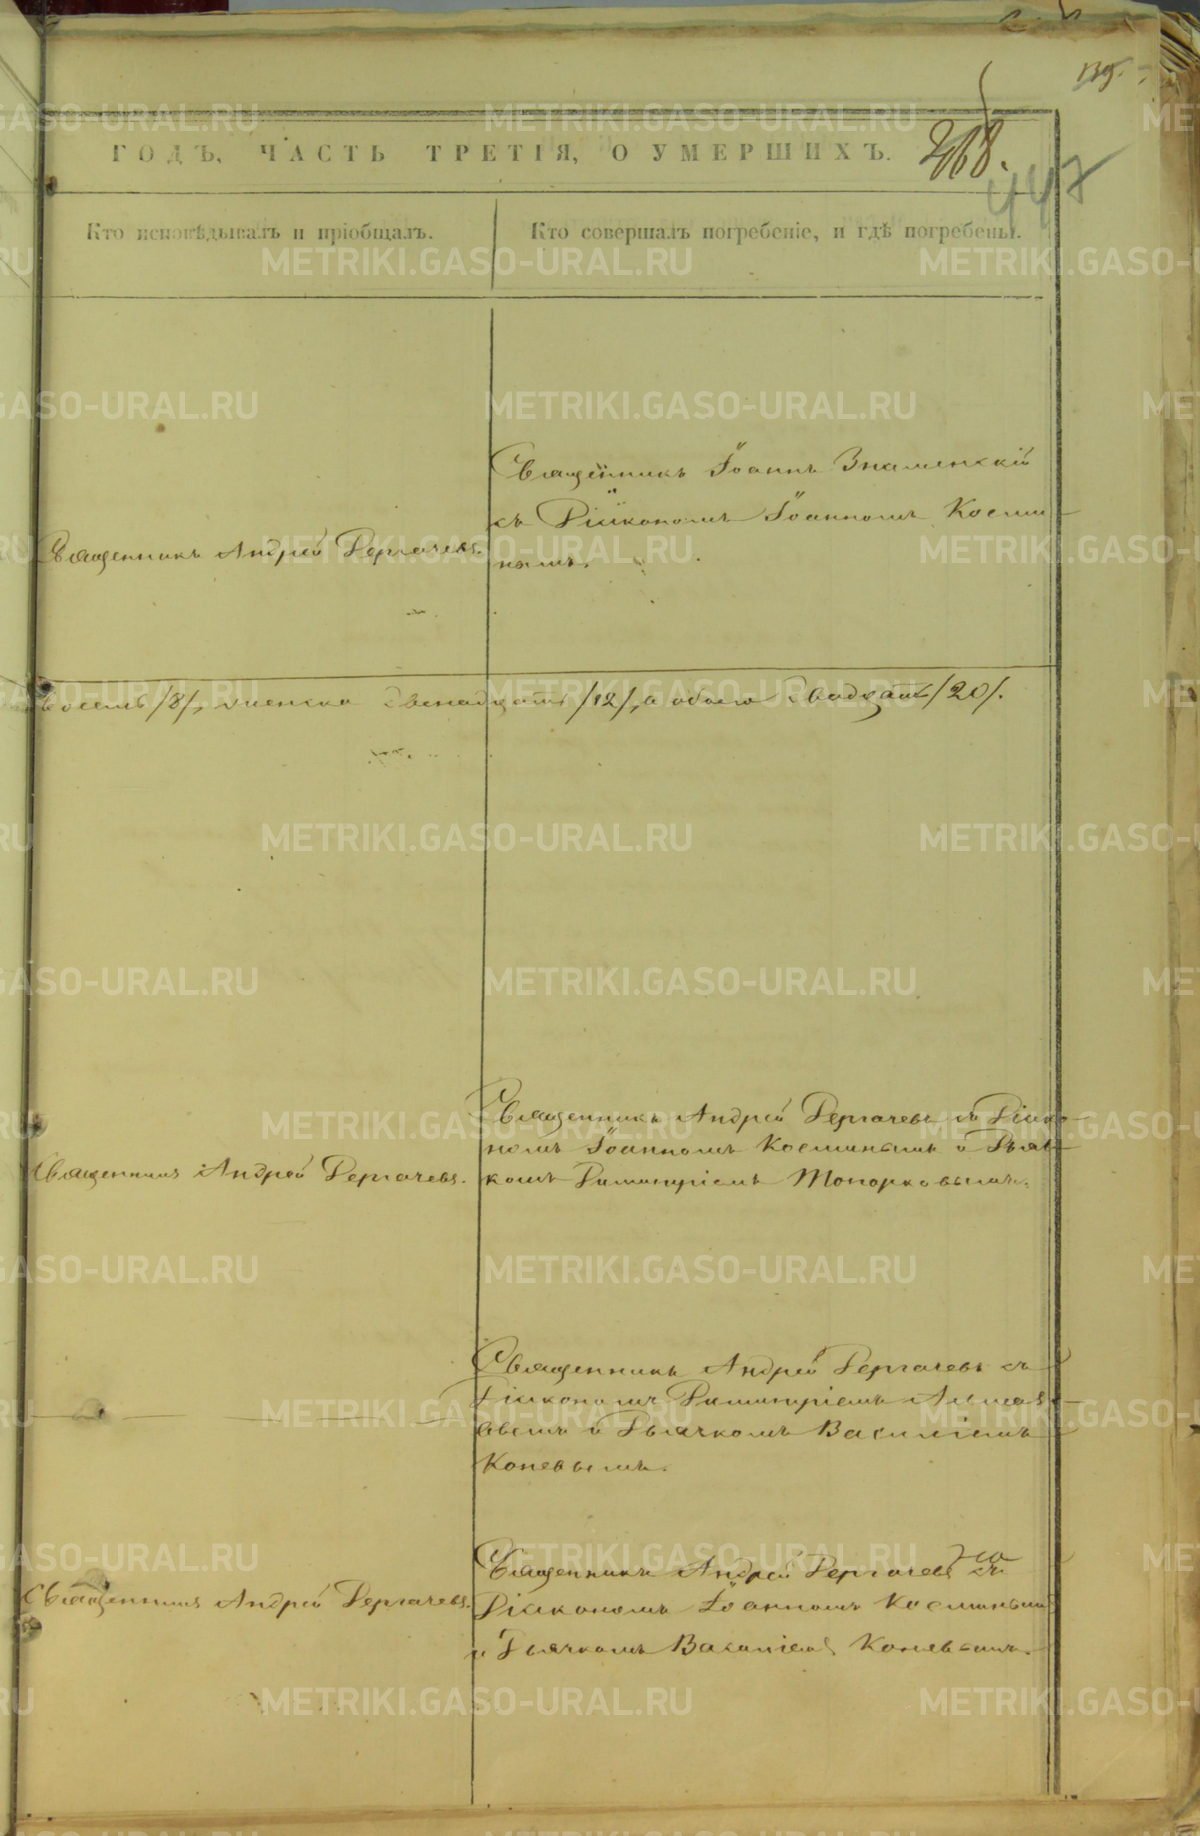 139.
268.
447
ГОДЪ, ЧАСТЬ ТРЕТІЯ, О УМЕРШИХЪ.
Кто исповѣдывалъ и пріобщалъ.
Кто совершалъ погребеніе, и гдѣ погребены.
Священникъ Іоаннъ Знаменскій
съ Діакономъ Іоанномъ Косми-
нымъ.
Священникъ Андрей Дергачевъ.
восемь /8/, женска двенадцать /12/, а обоего двадцать /20/.
Священникъ Андрей Дергачевъ съ Діако-
номъ Іоанномъ Косминымъ и Дьяч-
комъ Димитріемъ Топорковымъ.
Священникъ Андрей Дергачевъ.
Священникъ Андрей Дергачевъ съ
Діакономъ Димитріемъ
и Дьячкомъ Василіемъ
Коневымъ.
Священникъ Андрей Дергачевъ съ
Діакономъ Іоанномъ Косминымъ
и Дьячкомъ Василіемъ Коневымъ.
Священникъ Андрей Дергачевъ.
METRIKI.GASO-URAL.RU